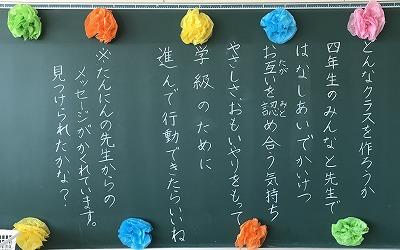 どんなクラスを作ろうか
四年生のみんなと先生で
はなしあいでかいけつ
お互いを認め合う気持ち
たが
みと
やさしさ、おもいやりをもって
学級のために
進んで行動できたらいいね
※たんにんの先生からの
メッセージがかくれています。
見つけられたかな?